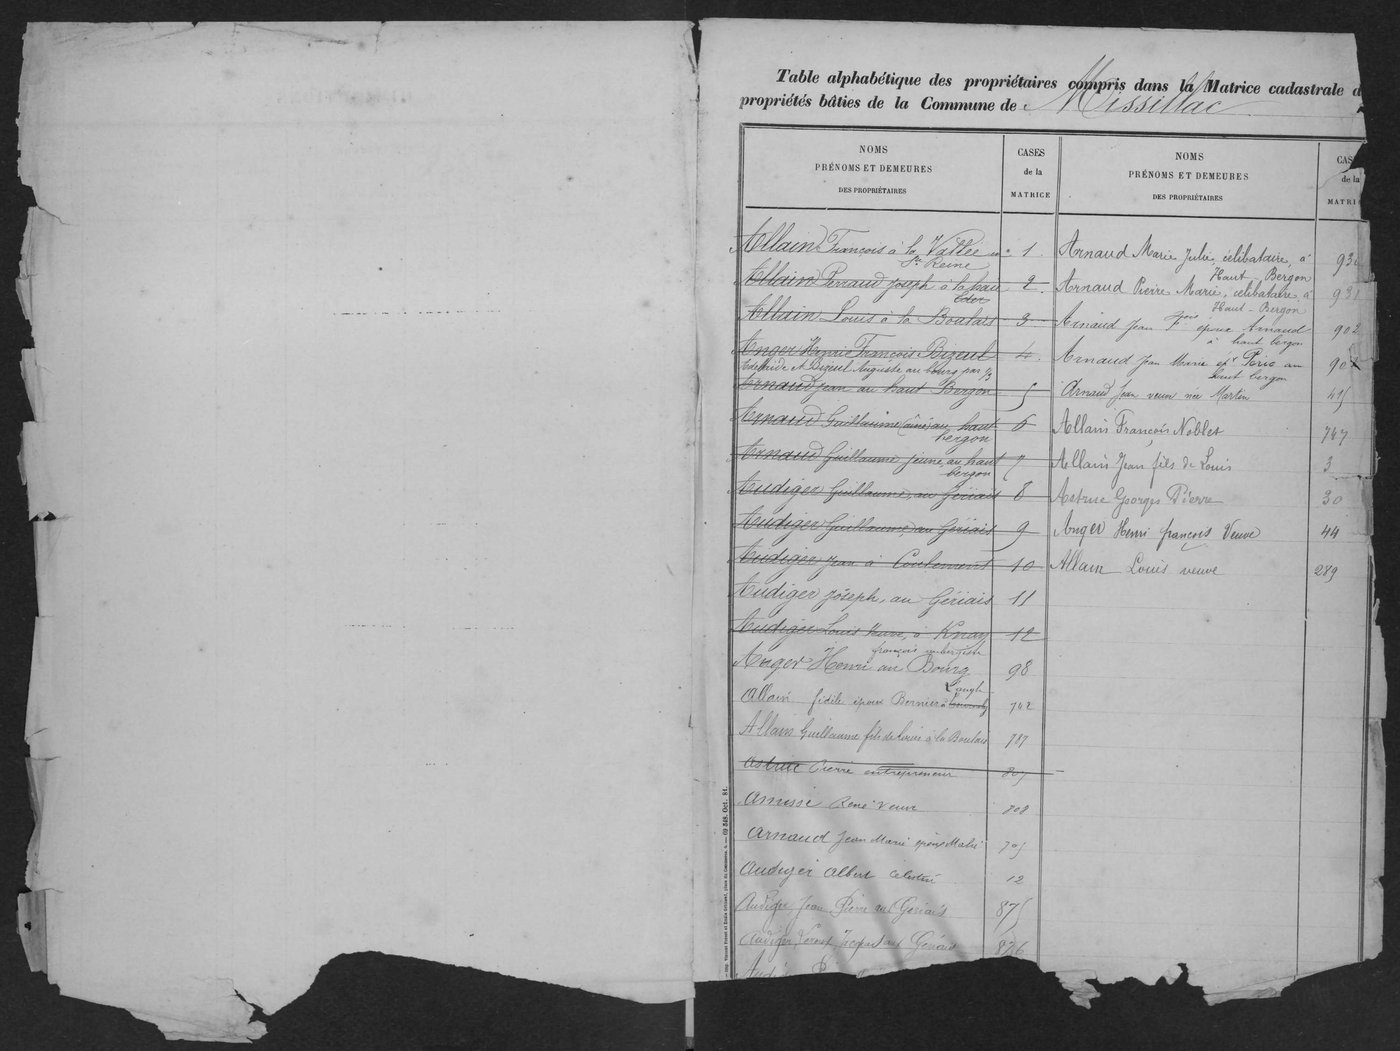 Table alphabétique des propriétaires compris dans la Matrice cadastrale d
propriétés bâties de la Commune de Missillac
NOMS
PRÉNOMS ET DEMEURES
DES PROPRIÉTAIRES
CASES
de la
MATRICE
Allain François à la Vallée en 1
Ste Reine
Allain Perraud Joseph à la haie 2
Eder
Allain Louis à la Boulais 3
Anger Henri François Bizeul 4
Adelaide et Bizeul Auguste au bourg par 1/3
Arnaud Jean au haut Bergon 5
Arnaud Guillaume (ainé) au haut 6
bergon
Arnaud Guillaume jeune, au haut 7
bergon
Audiger Guillaume, au Gériais 8
Audiger Guillaume, au Gériais 9
Audiger Jean à Coulement 10
Audiger Joseph, au Gériais 11
Audiger Louis Veuve, à 12
françois aubergiste
Anger Henri au Bourg 98
Allain fidèle époux Bernier à 742
Allain Guillaume fils de Louis à la Boulais 787
Astruc Pierre entrepreneur 805
René Veuve 808
Arnaud Jean Marie 705
Audiger Albert Célestin 12
Audiger Jean Pierre au Gériais 875
Audiger au Gériais 876
NOMS
PRÉNOMS ET DEMEURES
DES PROPRIÉTAIRES
CAS
de la
MATRI
Arnaud Marie Julie, célibataire, à 93
Haut-Bergon
Arnaud Pierre Marie, célibataire, à 931
Haut-Bergon
Arnaud Jean Fçois époux Arnaud 902
à haut bergon
Arnaud Jean Marie ép Rio au 90
haut bergon
Arnaud Jean veuve née Martin 415
Allain François Noblet 747
Allain Jean fils de Louis 3
Astruc Georges Pierre 30
Anger Henri françois Veuve 44
Allain Louis veuve 289